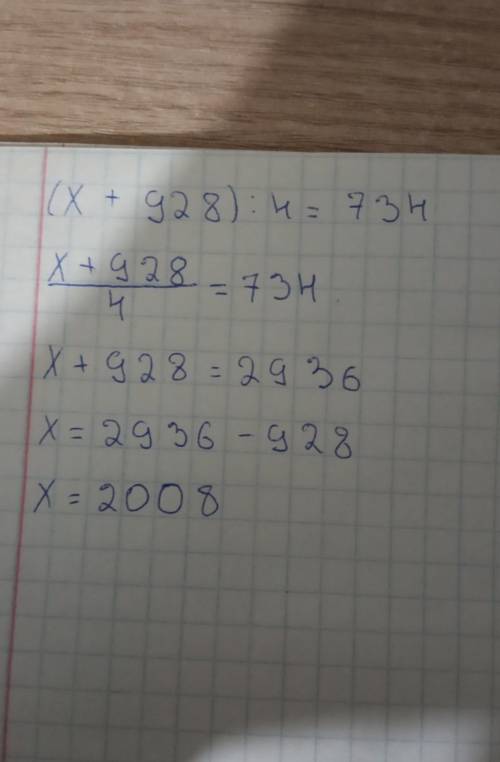 (x + 928) : 4 = 734
x + 928
4
= 734
x + 928 = 2936
x = 2936 - 928
x = 2008